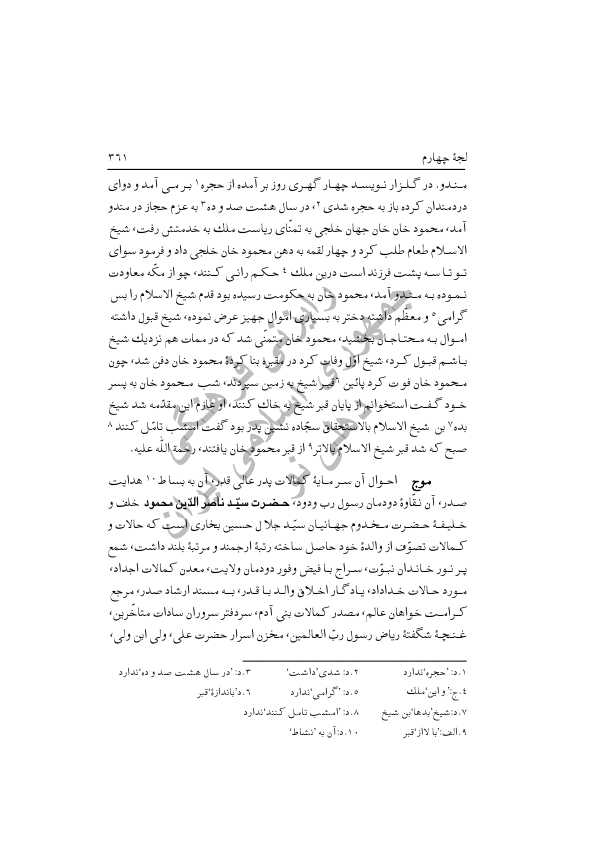 لجۀ چهارم ۳۶۱
مندو. در گلزار نویسد چهار گهری روز بر آمده از حجره۱ بر می آمد و دوای
دردمندان کرده باز به حجره شدی۲، در سال هشت صد و ده۳ به عزم حجاز در مندو
آمد، محمود خان خان جهان خلجی به تمنّای ریاست ملك به خدمتش رفت، شیخ
الاسلام طعام طلب کرد و چهار لقمه به دهن محمود خان خلجی داد و فرمود سوای
تو تا سه پشت فرزند است درین ملك۴ حکم رانی کنند، چو از مکّه معاودت
نموده به مندو آمد، محمود خان به حکومت رسیده بود قدم شیخ الاسلام را بس
گرامی۵ و معظّم داشته دختر به بسیاری اموال جهیز عرض نموده، شیخ قبول داشته
اموال به محتاجان بخشید، محمود خان متمنّی شد که در ممات هم نزدیك شیخ
باشم قبول کرد، شیخ اوّل وفات کرد در مقبره بنا کردۀ محمود خان دفن شد، چون
محمود خان فوت کرد پائین۶ قبر شیخ به زمین سپردند، شب محمود خان به پسر
خود گفت استخوانم از پایان قبر شیخ به خاك کنند، او عازم این مقدّمه شد شیخ
بده۷ بن شیخ الاسلام بالاستحقاق سجّاده نشین پدر بود گفت امشب تامّل کنند۸
صبح که شد قبر شیخ الاسلام بالاتر۹ از قبر محمود خان یافتند، رحمة اللّه علیه.
موج احوال آن سر مایۀ کمالات پدر عالی قدر، آن به بساط۱۰ هدایت
صدر، آن نقّاوۀ دودمان رسول رب ودود، حضرت سیّد ناصر الدّین محمود خلف و
خلیفۀ حضرت مخدوم جهانیان سیّد جلال حسین بخاری است که حالات و
کمالات تصوّف از والدۀ خود حاصل ساخته رتبۀ ارجمند و مرتبۀ بلند داشت، شمع
پر نور خاندان نبوّت، سراج با فیض وفور دودمان ولایت، معدن کمالات اجداد،
مورد حالات خداداد، یادگار اخلاق والد با قدر، به مسند ارشاد صدر، مرجع
کرامت خواهان عالم، مصدر کمالات بنی آدم، سردفتر سروران سادات متاخّرین،
غنچۀ شگفتۀ ریاض رسول ربّ العالمین، مخزن اسرار حضرت علی، ولی ابن ولی،
۱.د: ’حجره‘ندارد ۲.د: شدی’داشت‘ ۳.د: ’در سال هشت صد و ده‘ندارد
۴.ج: ’و این‘ملك ۵.د: ’گرامی‘ندارد ۶.د’باندازۀ‘قبر
۷.د:شیخ’بدها‘بن شیخ ۸.د: ’امشب تامل کنند‘ندارد
۹.الف:’بالااز‘قبر ۱۰.د:آن به ’نشاط‘